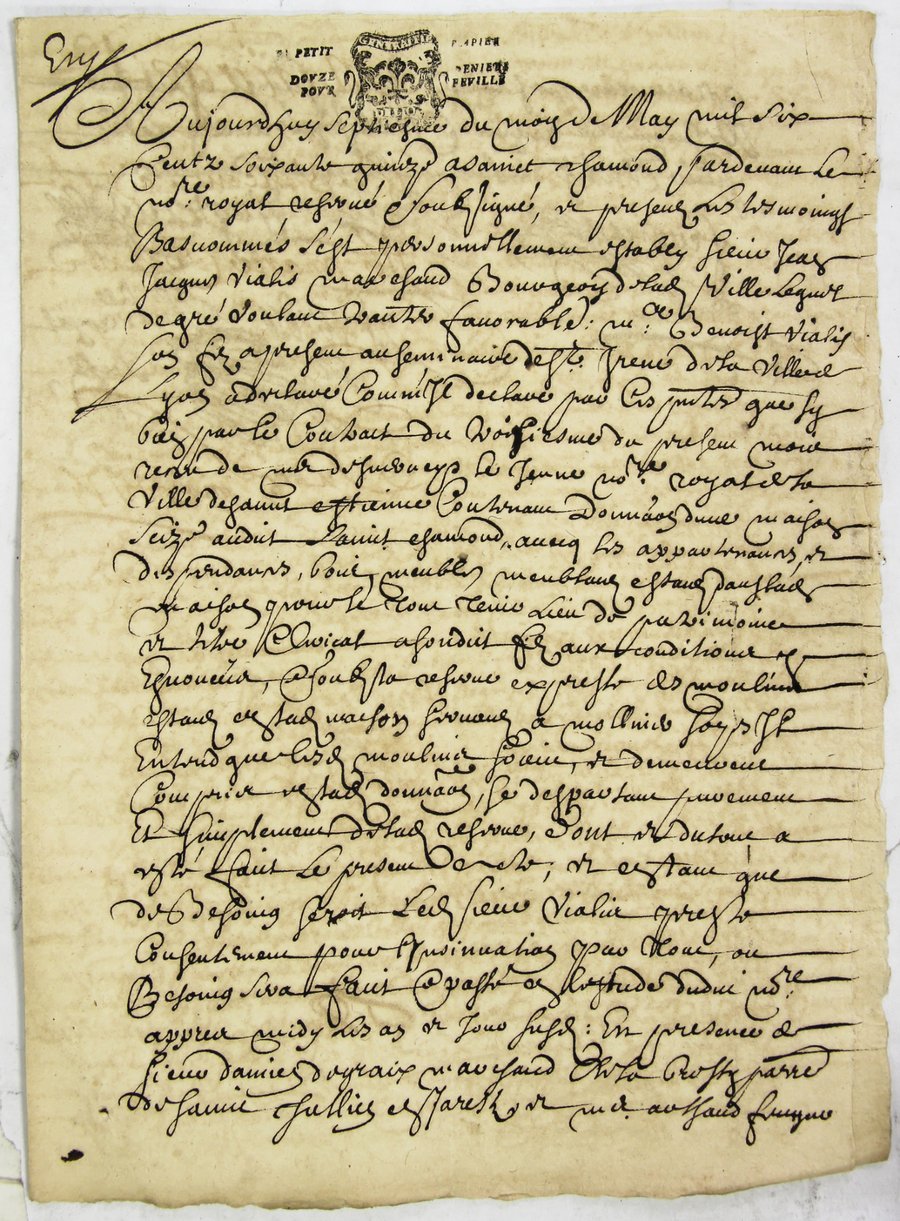 GENERALITE
PETIT PAPIER
DOVZE DENIERS
POVR FEVILLE
Aujourdhuy septiesme du mois de May mil six
Centz soixante quinze a sainct chamond, pardevant le
nore royal reservé & soubsigné, et presens les tesmoings
Basnommés s'est personnellement estably sieur Jean
Jacques Vialis marchand Bourgeois de lad ville Lequel
de gré voulant traitter favorablemt me Benoist Vialis
son filz a present au seminaire de st Irené de la ville de
Lyon a declaré Comm'Il declare par ces pntes que sy
bien par le Contract du troisiesme du present mois
receu de me le Jeune nore royal de la
Ville de sainct estienne Contenant Donnãon d'une maison
scizé audict sainct chamond, avecq les appartenances et
despendances, bois, meubles meublans estans dans lad
maison pour le tout tenir Lieu de patrimoine
et titre Clerical a sondict filz aux conditions y
Esnoncées, & soubz la reserve expresse des moulins
estans en lad maison servans a molliner soyes Il
Entend que lesd moulins soient, et demeurent
Compris en lad donnãon, se despartant purement
Et simplement de lad reserve, Dont et du tout a
esté faict le present acte, et en tant que
de Besoing seroit Led sieur Vialis preste
Consentement pour l'Insinuation par tout, ou
Besoing sera faict & passé en l'estude dudict nore
appres midy les an et Jour susd: En presence de
sieur damien degraix marchand de la
de sainct en Jarest, et me arthaud